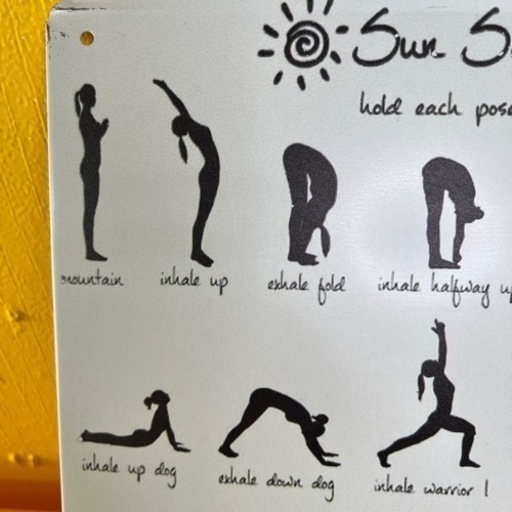 Sun S
hold each pose
mountain
inhale up
exhale fold
inhale halfway up
inhale up dog
exhale down dog
inhale warrior 1